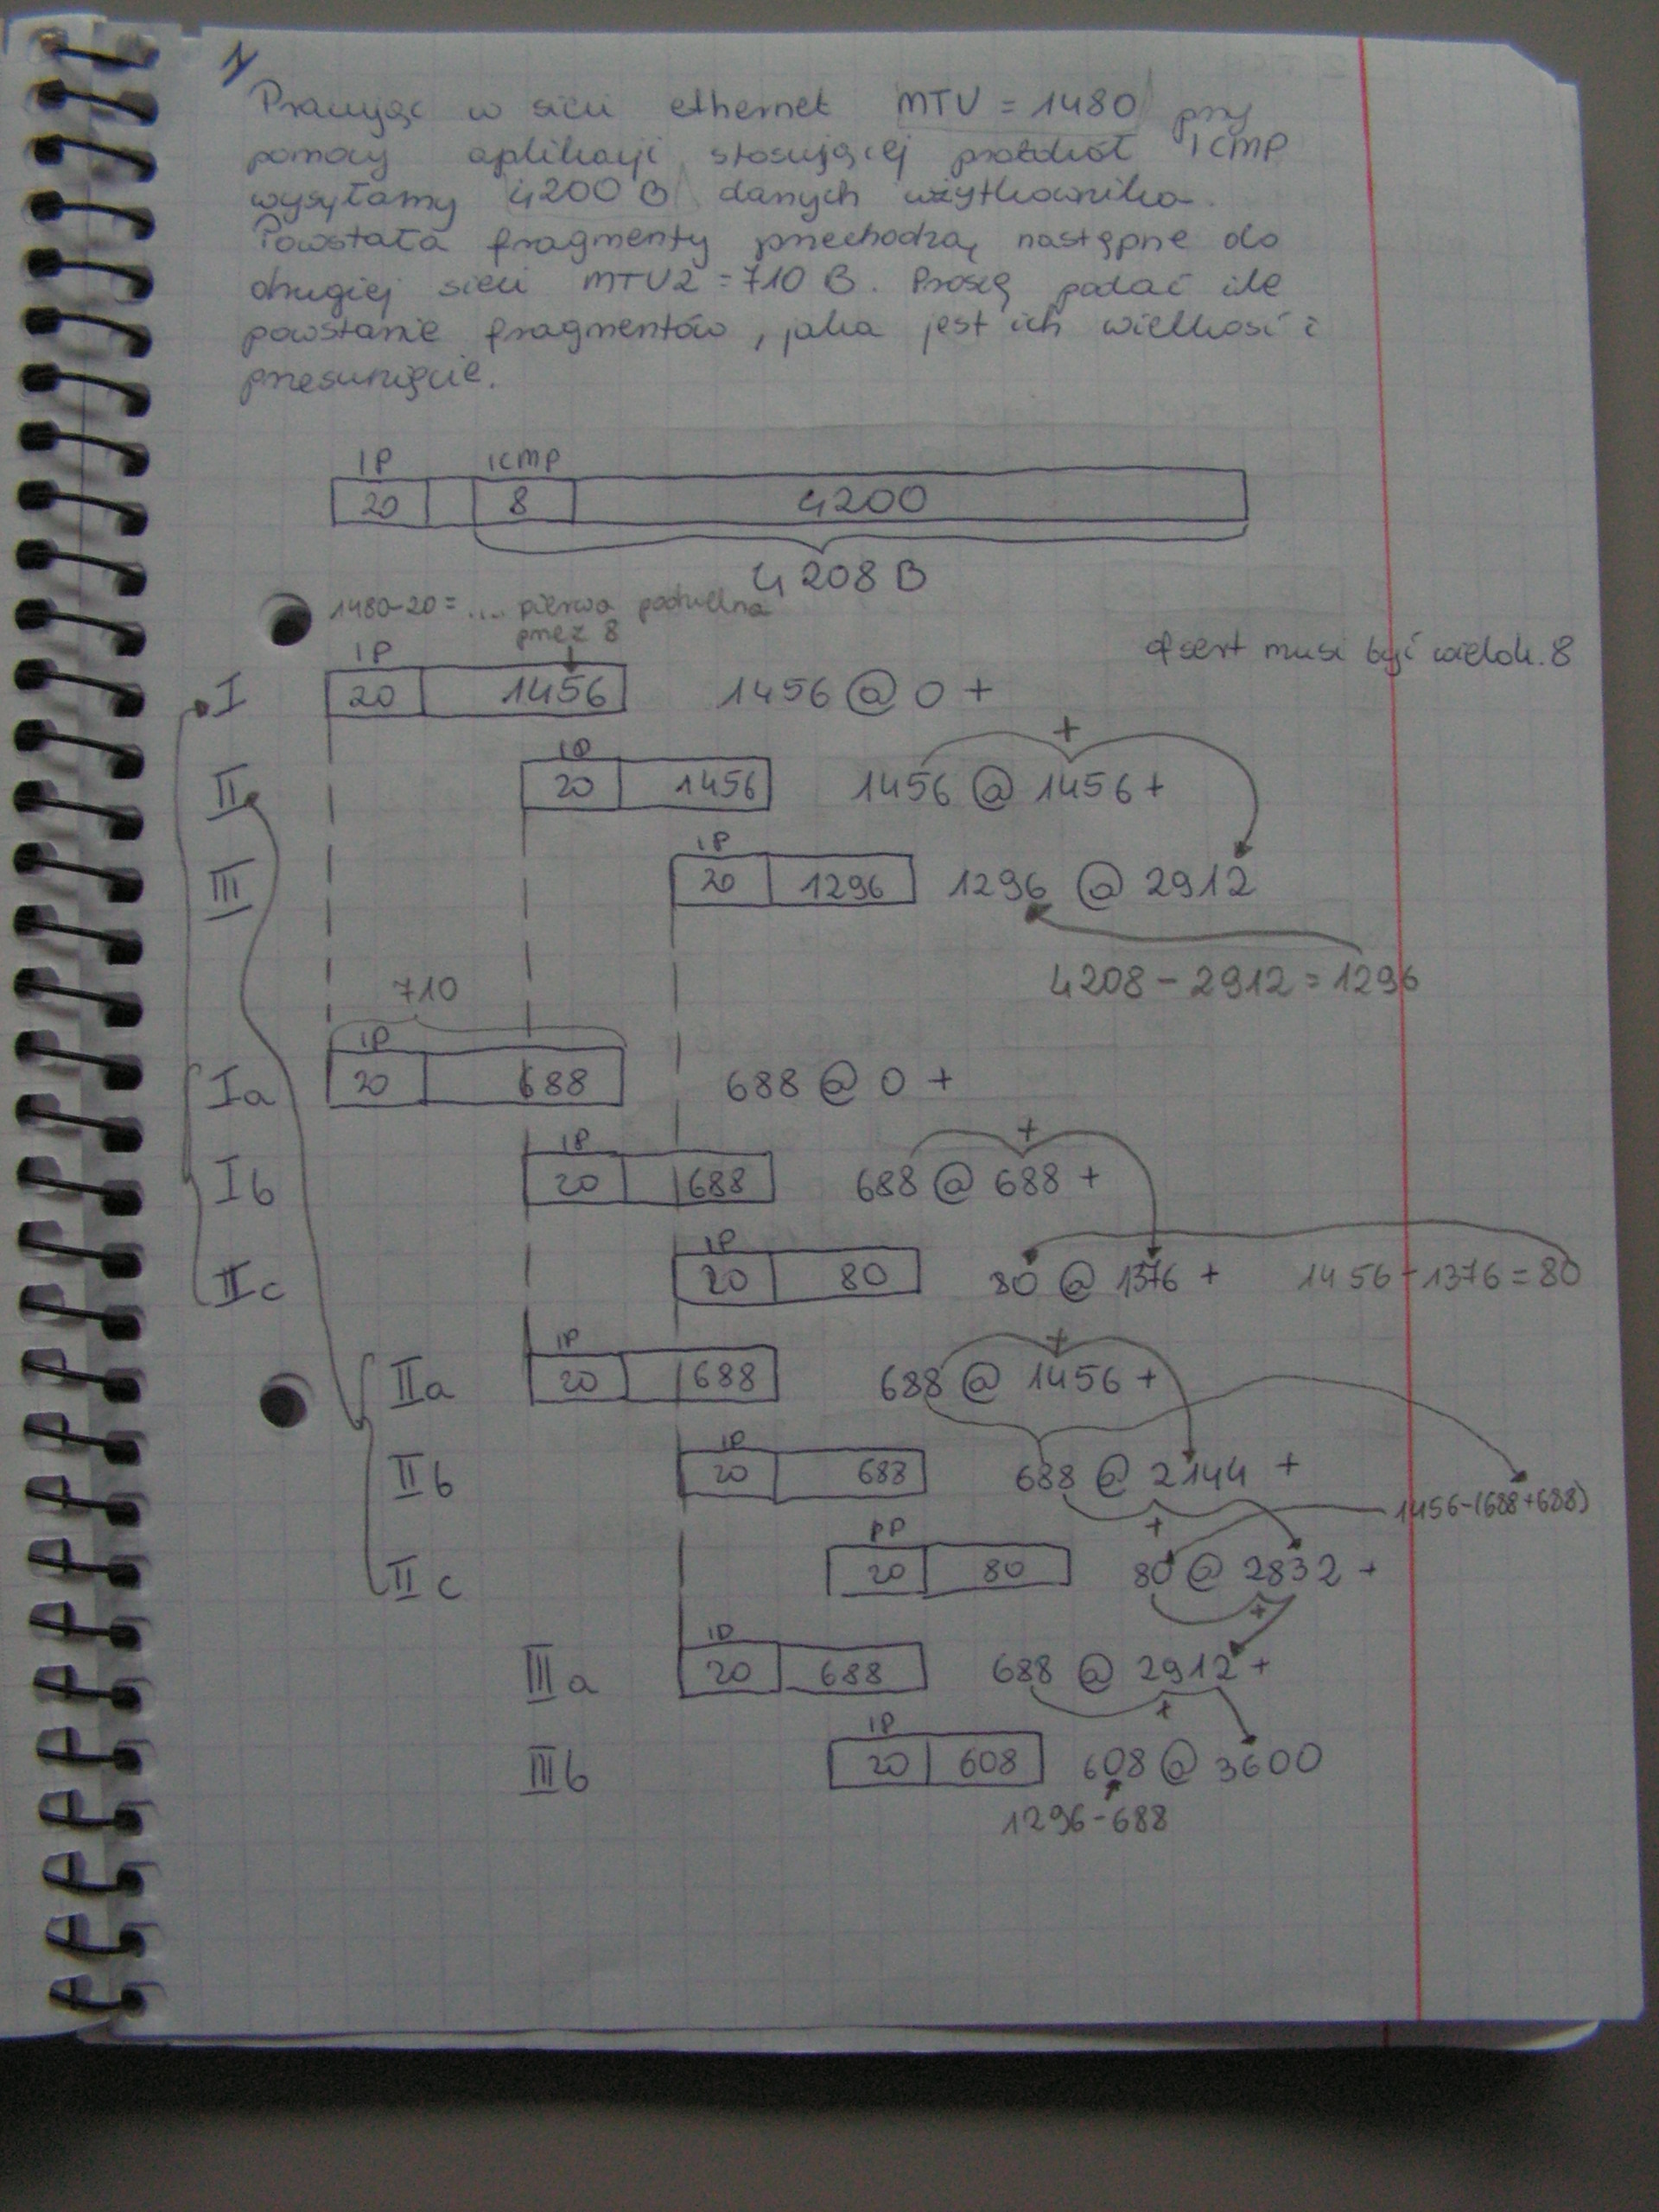 1
Pracując w sieci ethernet MTU = 1480 przy
pomocy aplikacji stosującej protokół ICMP
wysyłamy 4200 B danych użytkownika.
Powstałа fragmenty przechodzą następne do
drugiej sieci MTU2 = 710 B. Proszę podać ile
powstanie fragmentów, jaka jest ich wielkość i
przesunięcie.
IP ICMP
20 8 4200
4208 B
1480-20= .... pierwsza podzielna
przez 8
ofsert musi być wielok. 8
IP
I 20 1456 1456 @ 0 +
+
IP
II 20 1456 1456 @ 1456 +
IP
III 20 1296 1296 @ 2912
4208 - 2912 = 1296
710
IP
Ia 20 688 688 @ 0 +
+
IP
Ib 20 688 688 @ 688 +
IP
IIc 20 80 80 @ 1376 + 1456 - 1376 = 80
+
IP
IIa 20 688 688 @ 1456 +
IP
IIb 20 688 688 @ 2144 +
1456-(688+688)
+
PP
IIc 20 80 80 @ 2832 +
+
IP
IIIa 20 688 688 @ 2912 +
+
IP
IIIb 20 608 608 @ 3600
1296-688